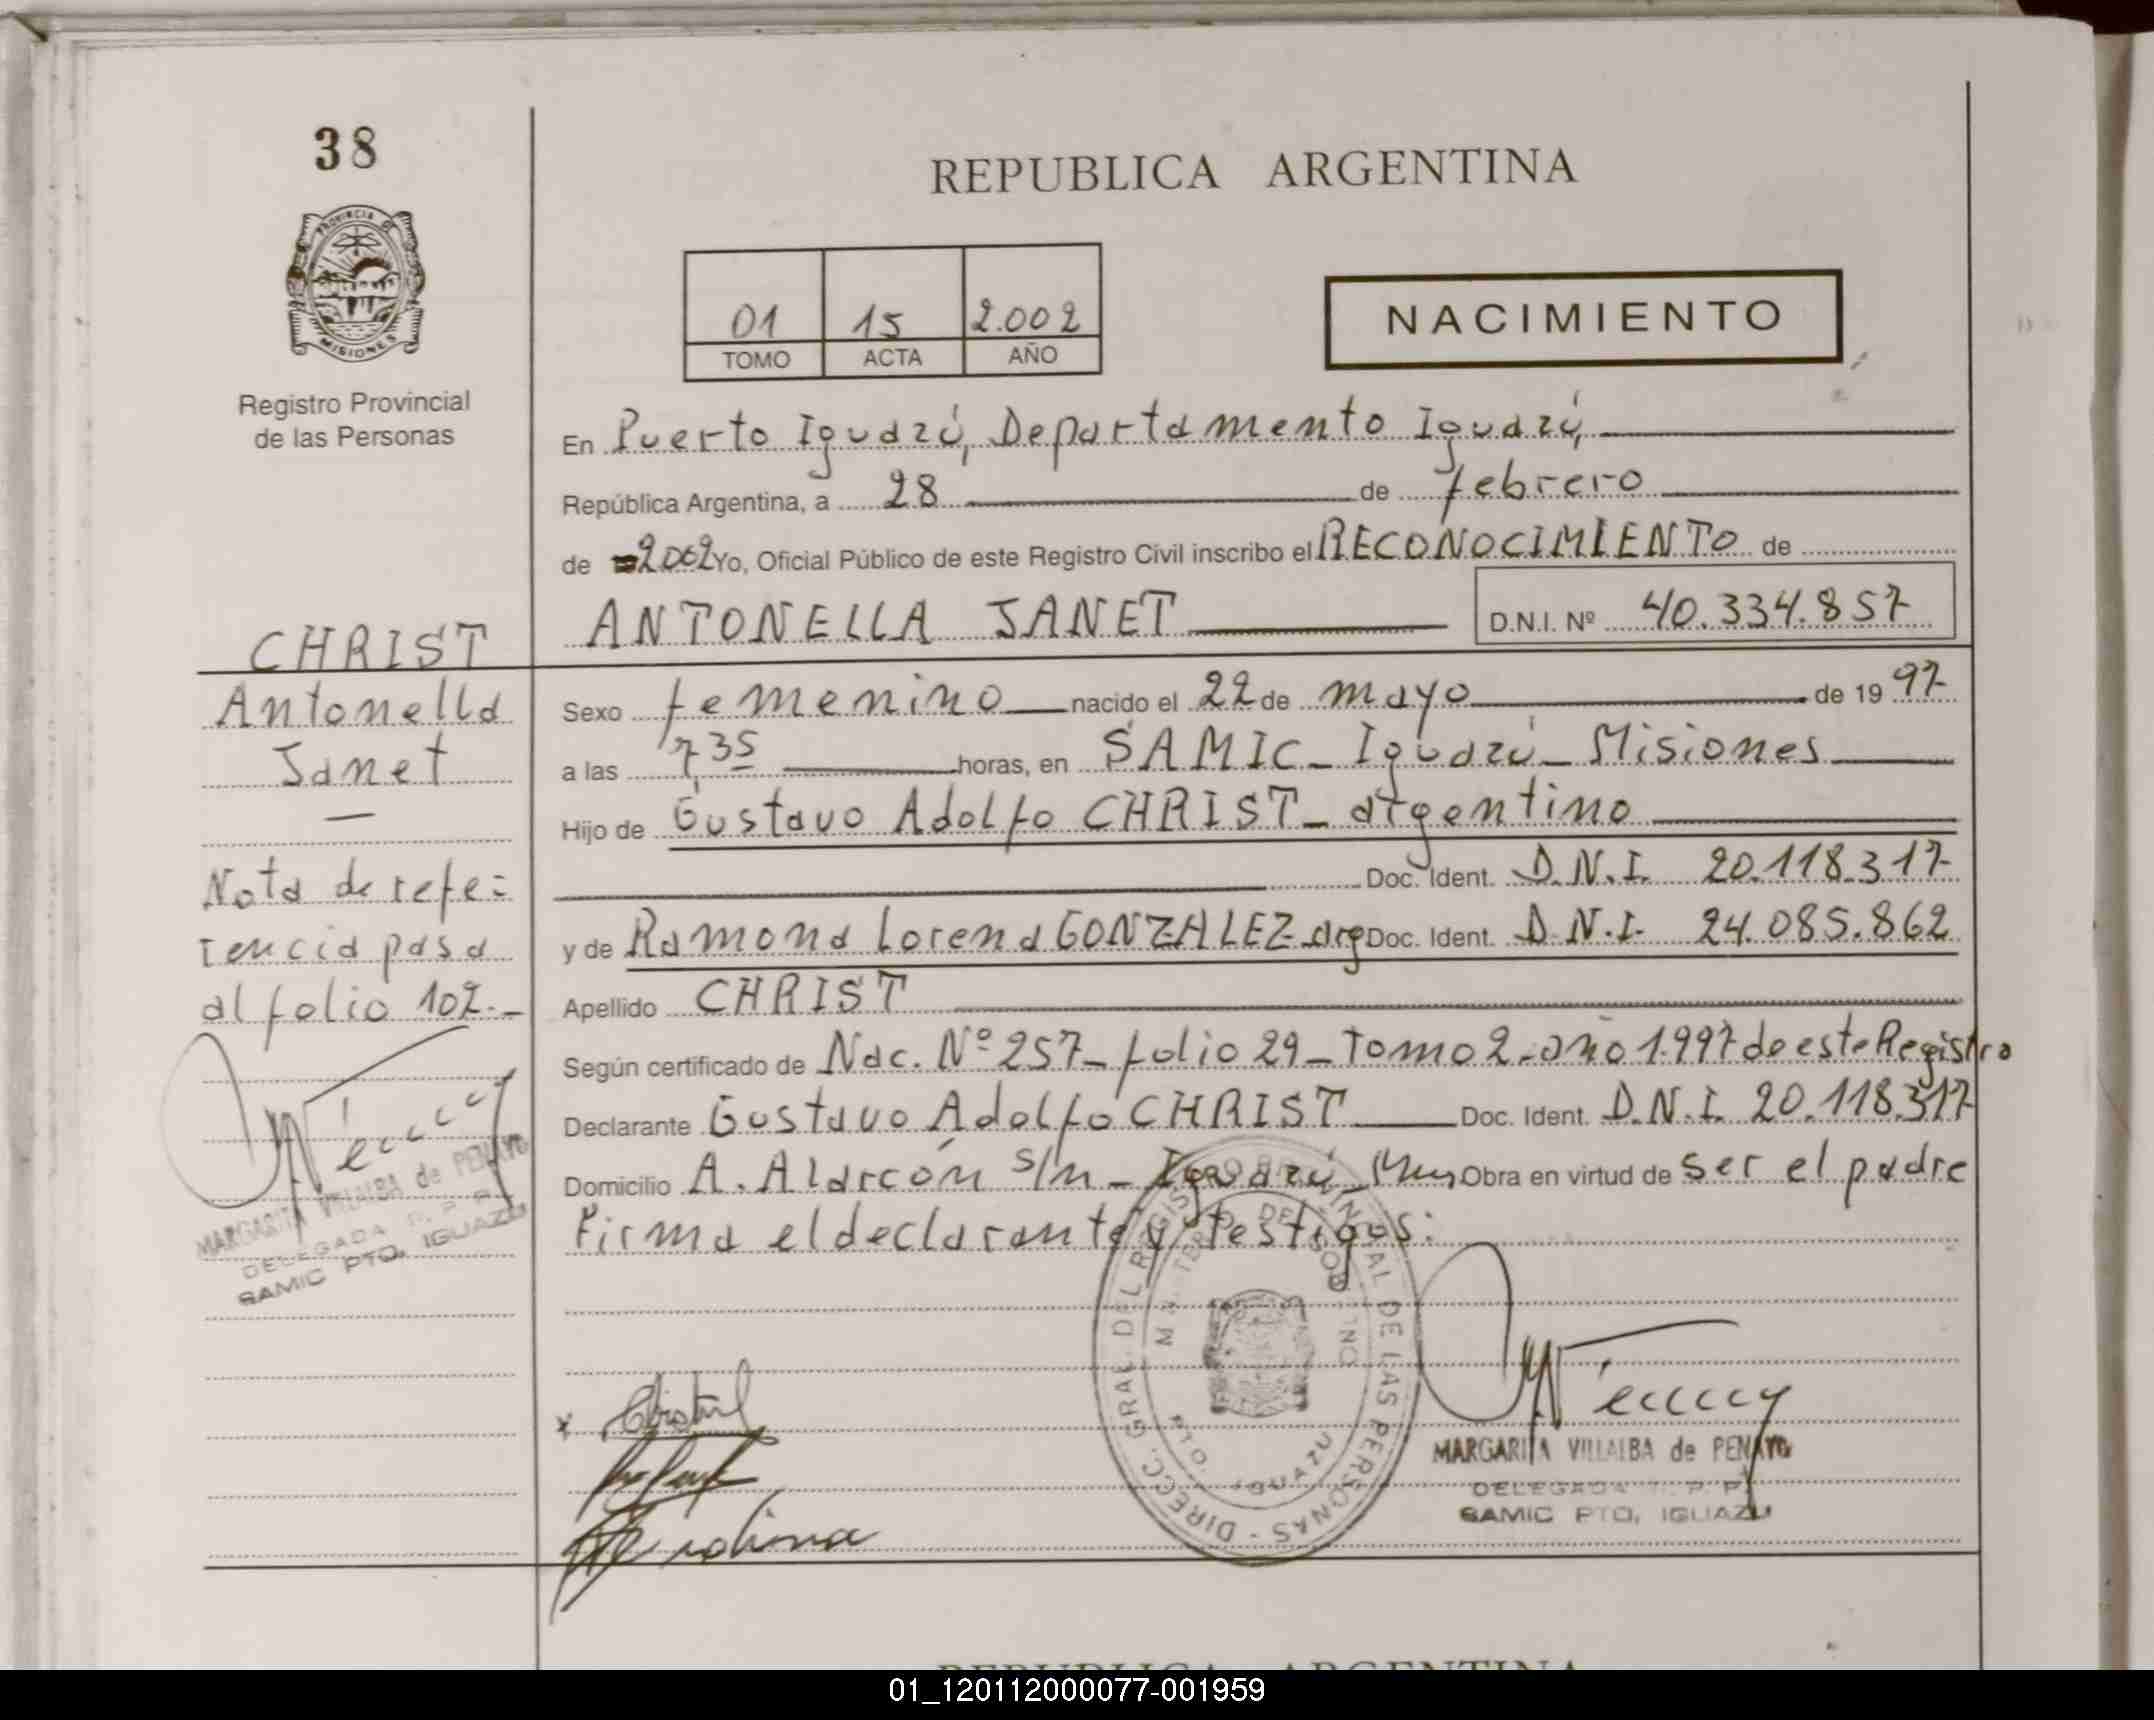 38
PROVINCIA DE
MISIONES
Registro Provincial
de las Personas
REPUBLICA ARGENTINA
01 15 2.002
TOMO ACTA AÑO
NACIMIENTO
En Puerto Iguazú, Departamento Iguazú,
República Argentina, a 28 de febrero
de 2002 Yo, Oficial Público de este Registro Civil inscribo el RECONOCIMIENTO de
ANTONELLA JANET D.N.I. Nº 40.334.857
CHRIST
Antonella
Janet
Nota de refe=
rencia pasa
al folio 102.-
MARGARITA VILLALBA de PENAYO
DELEGADA R. P. P.
SAMIC PTO. IGUAZU
Sexo femenino nacido el 22 de mayo de 1997
a las 7,35 horas, en SAMIC - Iguazú - Misiones
Hijo de Gustavo Adolfo CHRIST - argentino
Doc. Ident. D.N.I. 20.118.317
y de Ramona Lorena GONZALEZ - arg Doc. Ident. D.N.I. 24.085.862
Apellido CHRIST
Según certificado de Nac. Nº 257 - folio 29 - Tomo 2 - año 1.997 de este Registro
Declarante Gustavo Adolfo CHRIST Doc. Ident. D.N.I. 20.118.317
Domicilio A. Alarcón s/n - Iguazú - Mnes Obra en virtud de ser el padre
Firma el declarante y testigos:
DIRECC. GRAL. DEL REGISTRO PROVINCIAL DE LAS PERSONAS
IGUAZU
MARGARITA VILLALBA de PENAYO
DELEGADA R. P. P.
SAMIC PTO. IGUAZU
REPUBLICA ARGENTINA
01_120112000077-001959